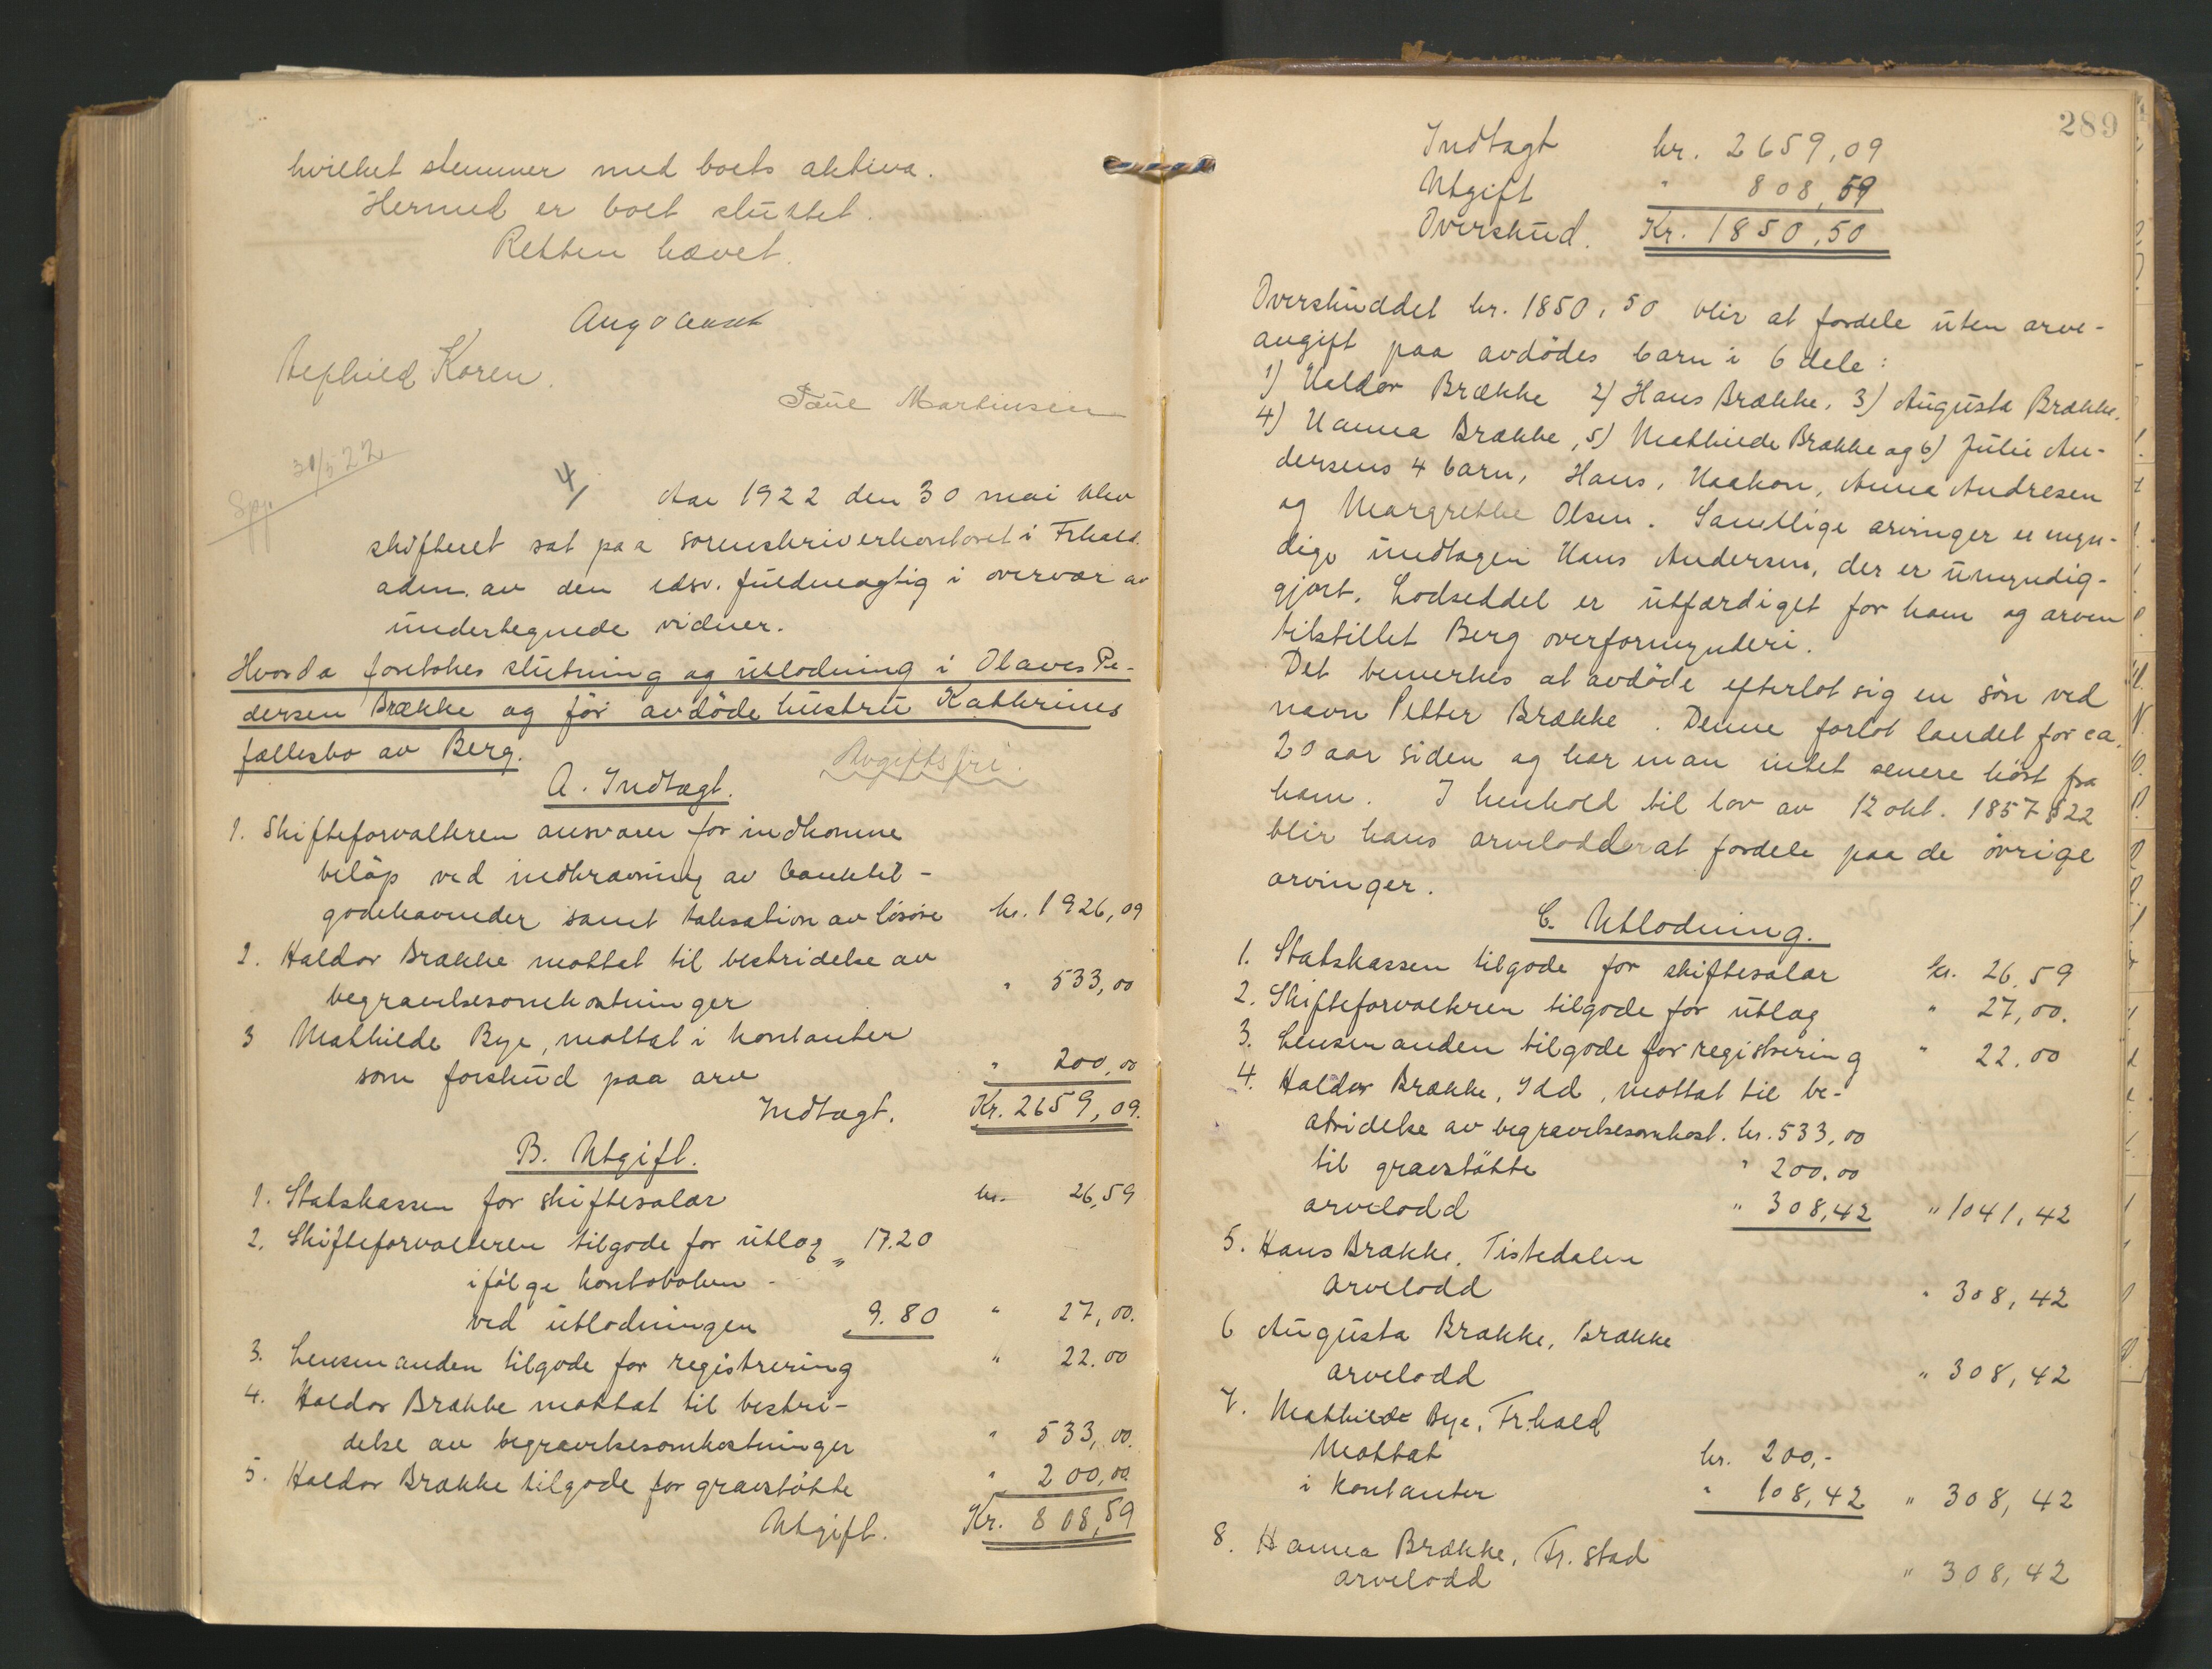 hvilket stemmer med boets aktiva.
Hermed er boet sluttet.
Retten hævet.
Koren.
Paul Martinsen
30/5 22
4/ Aar 1922 den 30 mai blev
skifteret sat paa sorenskriverkontoret i Frhald.
adm. av den edsv. fuldmægtig i overvær av
undertegnede vidner.
Hvorda foretokes slutning og utlodning i Olaves Pe-
dersen Brække og før avdøde hustru Kathrines
fællesbo av Berg.
Avgiftsfri.
A. Indtægt.
1. Skifteforvalteren ansvarer for indkomne
beløp ved indkrævning av banktil-
godehavender samt taksation av løsøre kr. 1926,09
2. Haldor Brække mottat til bestridelse av
begravelsesomkostninger " 533,00
3 Mathilde Bye, mottat i kontanter
som forskud paa arv " 200,00
Indtægt. Kr. 2659,09.
B. Utgift.
1. Statskassen for skiftesalær kr. 26,59
2. Skifteforvalteren tilgode for utlæg " 17.20
ifølge kontoboken -
ved utlodningen 9.80 " 27,00.
3. Lensmanden tilgode for registrering " 22.00
4. Haldor Brække mottat til bestri-
delse av begravelsesomkostninger " 533,00.
5. Haldor Brække tilgode for gravstøtte " 200,00.
Utgift. Kr. 808,59
289
Indtægt kr. 2659,09
Utgift " 808,59
Overskud. Kr. 1850,50
Overskuddet kr. 1850,50 blir at fordele uten arve-
avgift paa avdødes barn i 6 dele:
1) Haldor Brække 2) Hans Brække, 3) Augusta Brække.
4) Hanna Brække, 5) Mathilde Brække og 6) Julie An-
dersens 4 barn, Hans, Haakon, Anna Andresen
og Margrethe Olsen. Samtlige arvinger er myn-
dige undtagen Hans Andersen, der er umyndig-
gjort. Lodseddel er utfærdiget for ham og arven
tilstillet Berg overformynderi.
Det bemerkes at avdøde efterlot sig en søn ved
navn Petter Brække. Denne forlot landet for ca.
20 aar siden og har man intet senere hørt fra
ham. I henhold til lov av 12 okt. 1857 § 22
blir hans arvelodd at fordele paa de øvrige
arvinger.
C. Utlodning.
1. Statskassen tilgode for skiftesalær kr. 26,59
2. Skifteforvalteren tilgode for utlæg " 27,00.
3. Lensmanden tilgode for registrering " 22.00
4. Haldor Brække, Idd, mottat til be-
stridelse av begravelsesomkost. kr. 533,00
til gravstøtte " 200.00
arvelodd " 308,42 " 1041,42
5. Hans Brække, Tistedalen
arvelodd " 308,42
6 Augusta Brække, Brække
arvelodd " 308,42
7. Mathilde Bye, Fr.hald
Mottat kr. 200,-
i kontanter " 108,42 " 308,42
8. Hanna Brække, Fr.stad
arvelodd " 308,42